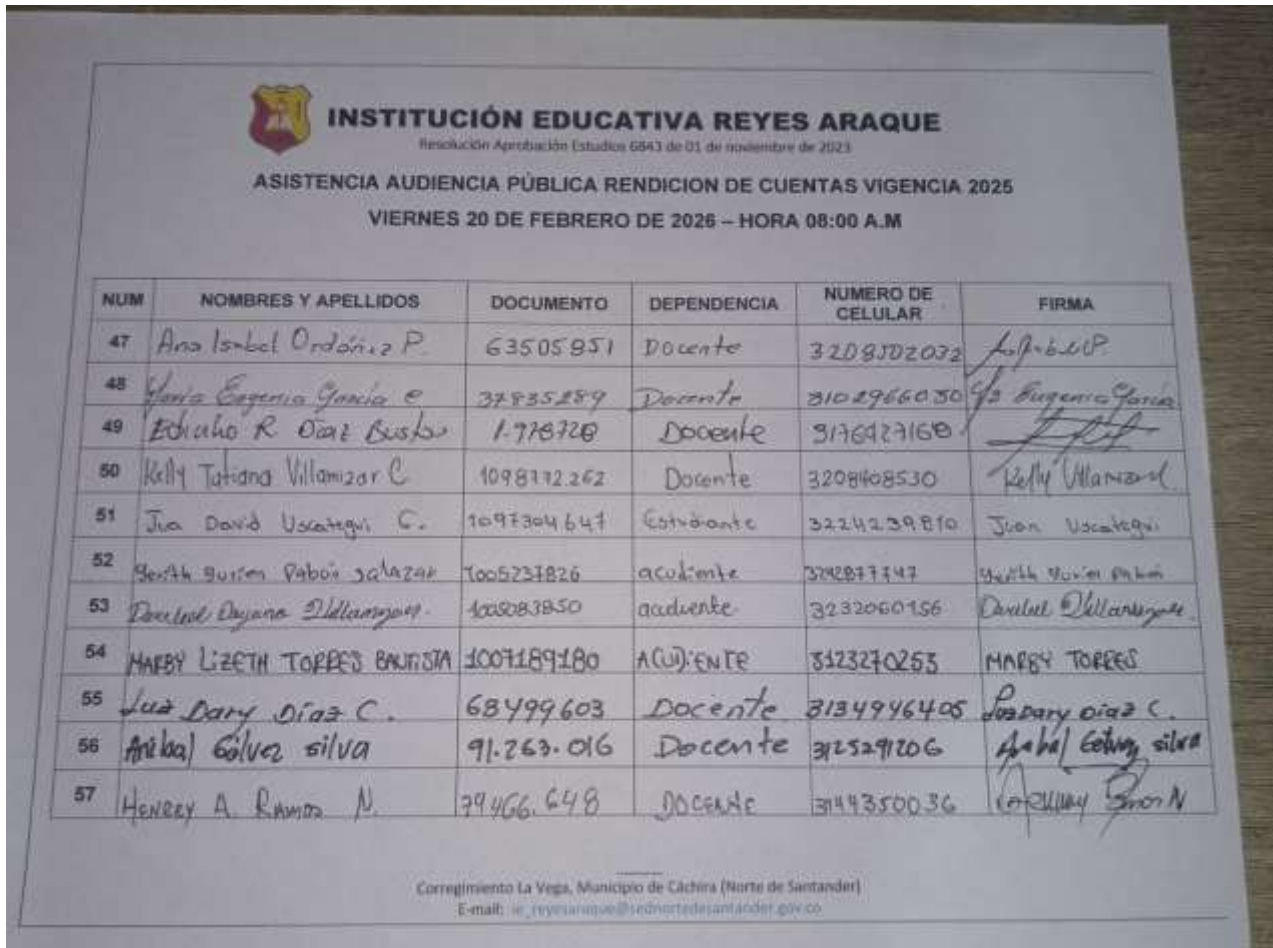 INSTITUCIÓN EDUCATIVA REYES ARAQUE
Resolución Aprobación Estudios 6843 de 01 de noviembre de 2023
ASISTENCIA AUDIENCIA PÚBLICA RENDICION DE CUENTAS VIGENCIA 2025
VIERNES 20 DE FEBRERO DE 2026 – HORA 08:00 A.M
NUM NOMBRES Y APELLIDOS DOCUMENTO DEPENDENCIA NUMERO DE CELULAR FIRMA
47 Ana Isabel Ordóñez P. 63505851 Docente 3208502032
48 Eugenia García 37835289 Docente 3102966050 Eugenia García
49 R Díaz Docente 3176927168
50 Kelly Tatiana Villamizar C 1098772.262 Docente 3208408530 Kelly Villamizar
51 David Uscategui C. 1097304647 Estudiante 3224239810 Juan Uscategui
52 Pabón Salazar 1005237826 acudiente Pabón
53 Dayana 1005083850 acudiente 3232060156
54 MARBY LIZETH TORRES BAUTISTA 1007189180 ACUDIENTE 3123270253 MARBY TORRES
55 Luz Dary Díaz C. 68499603 Docente 3134946405 Luz Dary Díaz C.
56 Anibal Gélvez silva 91.263.016 Docente 3125291206 Anibal Gelvez silva
57 HENRRY A. RAMOS N. 79466.648 DOCENTE 3144350036
Corregimiento La Vega, Municipio de Cáchira (Norte de Santander)
E-mail: ie_reyesaraque@sednortedesantander.gov.co